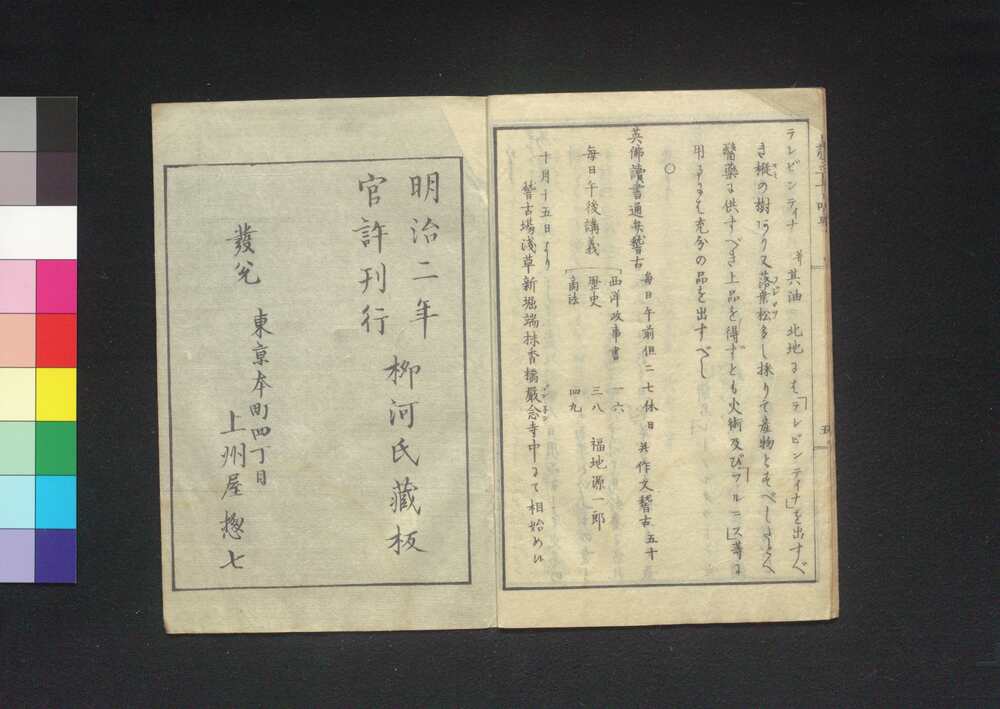 テレビンティナ 并其油 北地には「テレビンティナ」を出すべ
き樅の樹あり又落葉松多し採りて産物とすべしたとへ
醫藥に供すべき上品を得ずとも火術及び「フルニス」等に
用るには充分の品を出すべし
○
英佛讀書通弁稽古 毎日午前但二七休日 并作文稽古五十
毎日午後講義
西洋政事書 一六
歴史 三八
商法 四九
福地源一郎
十月十五日より
稽古場淺草新堀端抹香橋嚴念寺中にて相始め候
明治二年
官許刊行
柳河氏藏板
發兌
東京本町四丁目
上州屋惣七